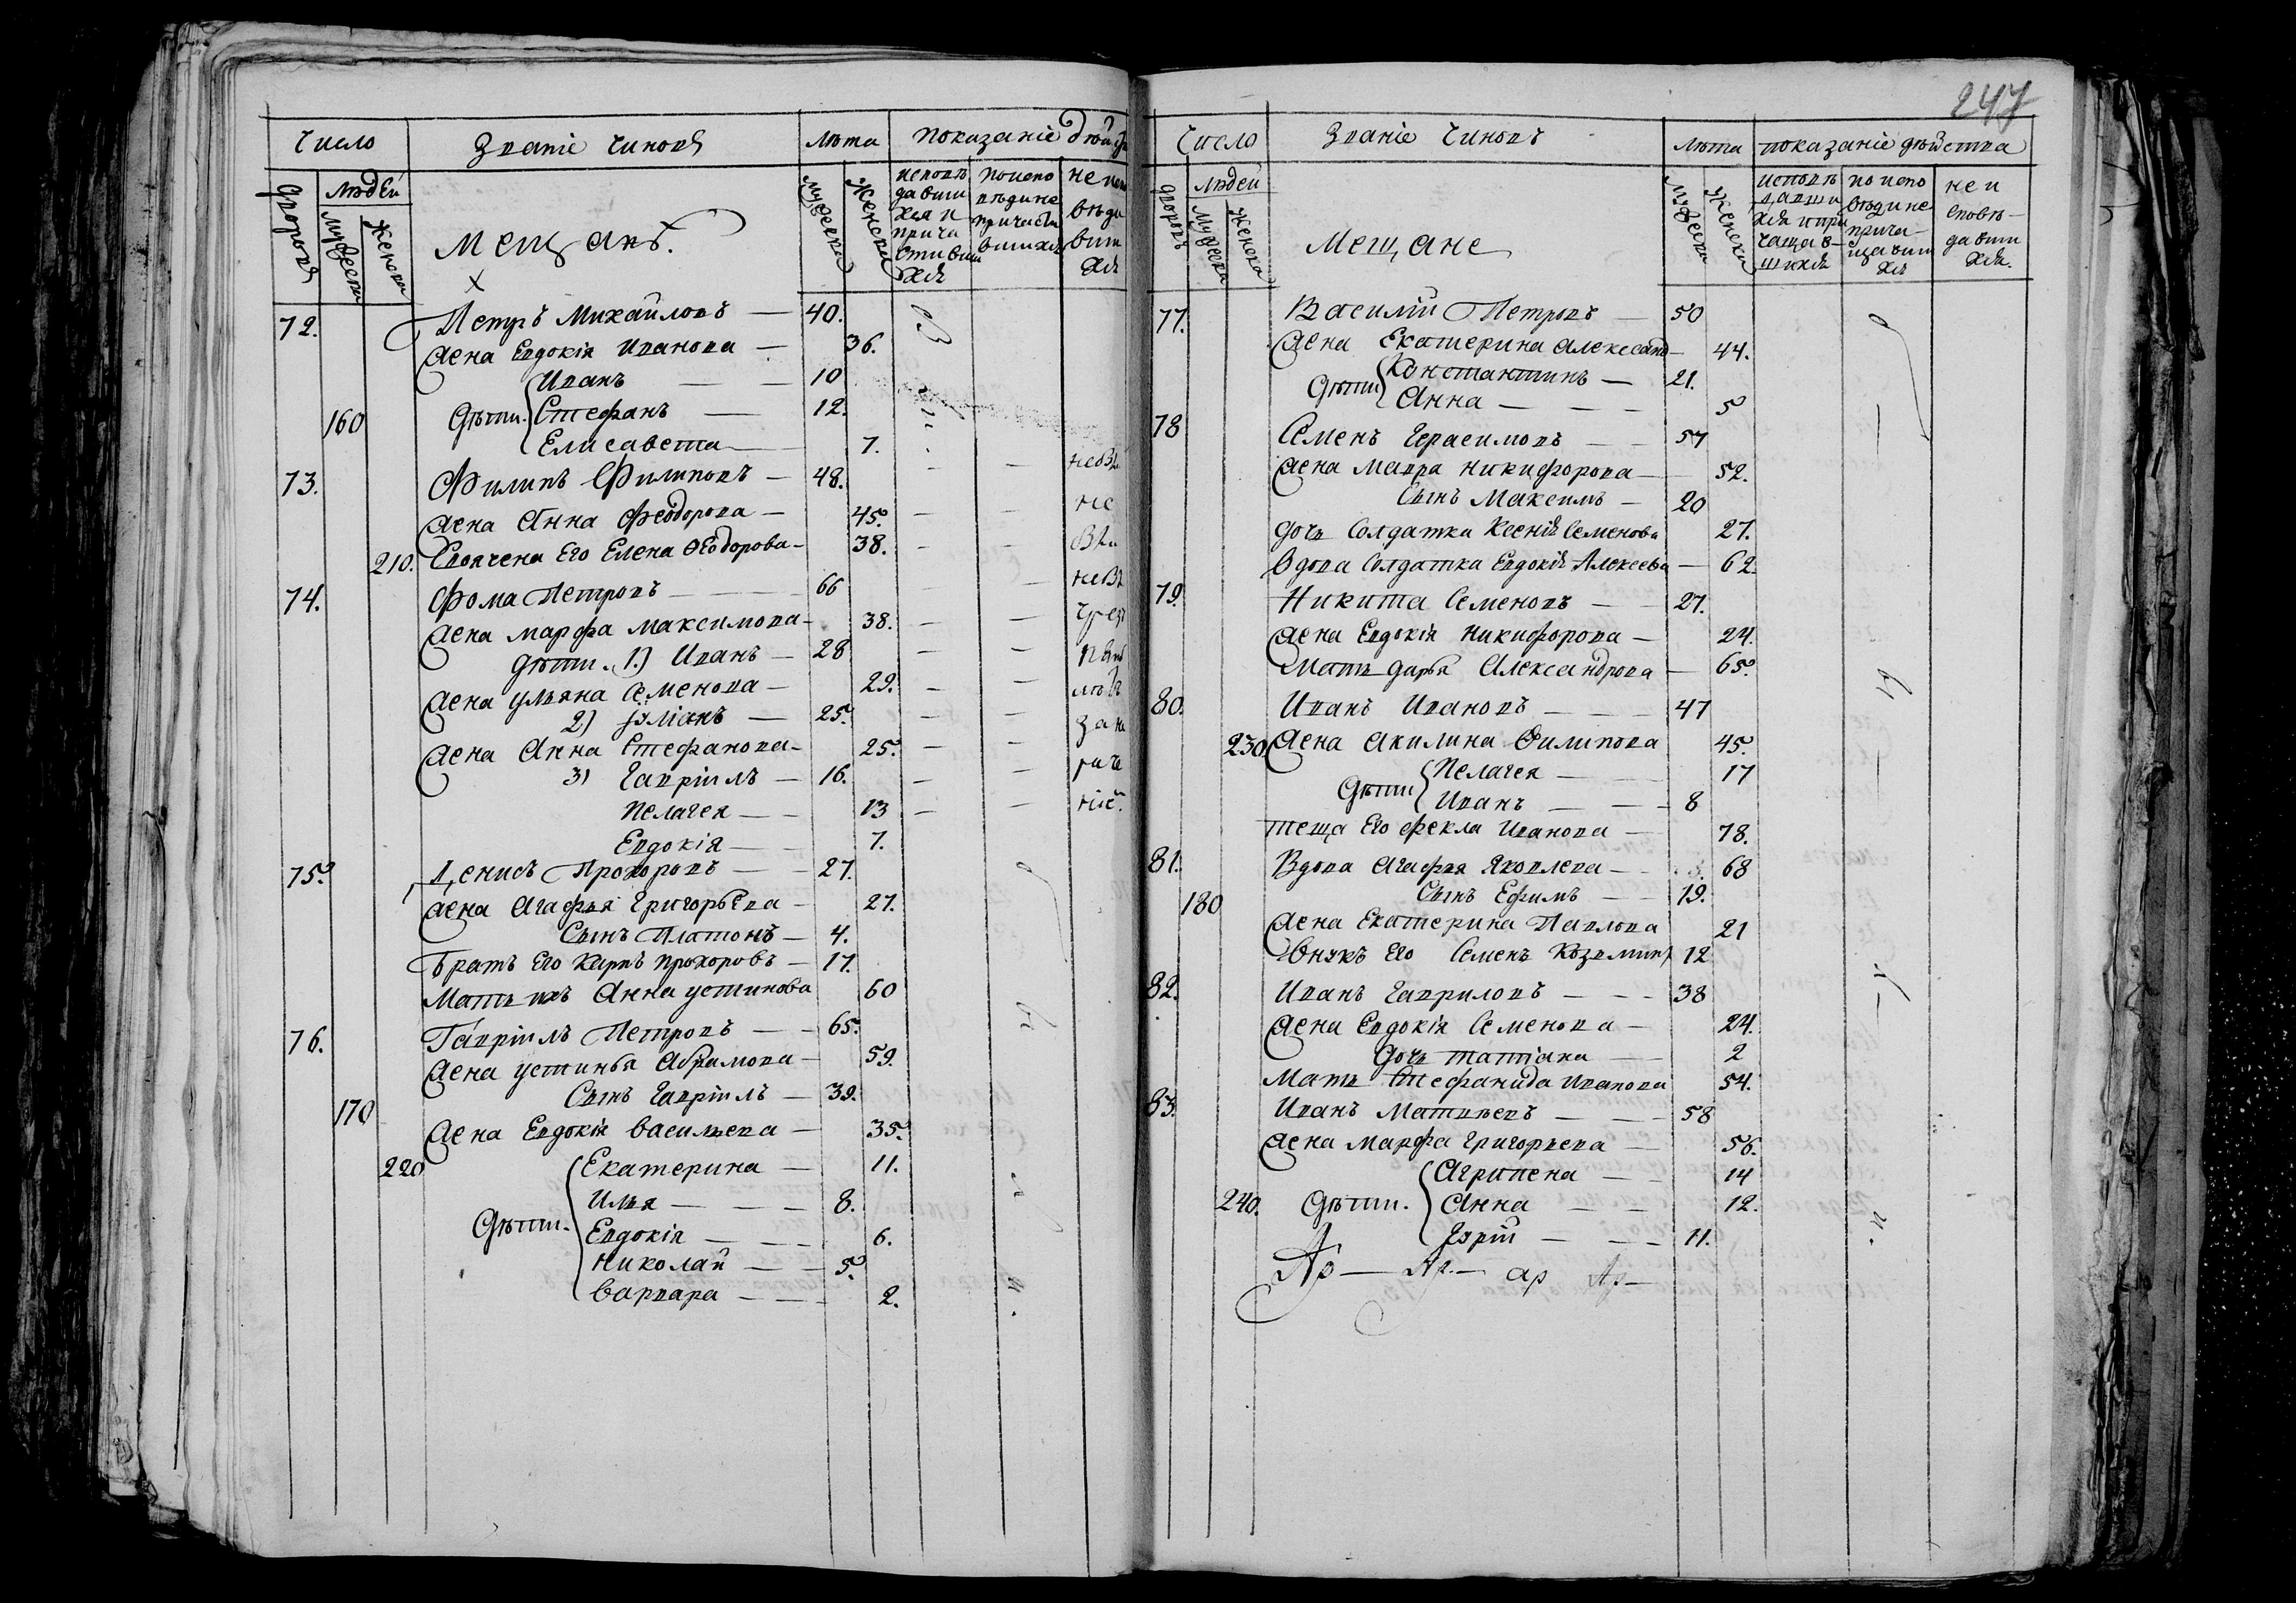 Число Званіе Чиновъ Лѣта Показаніе дѣйс
дворовъ Людей мужеска женска
мужеска женска
исповѣ
давши
хся и
прича
стивши
хся
по испо
вѣди не
причасти
вшихся
не испо
вѣда
вши
хся
Мещанъ.
72. Петръ Михайловъ — 40.
Жена Евдокія Иванова — 36.
Иванъ — — 10
160 Дѣти. Стефанъ — 12.
Елисавета — 7.
73. Филипъ Филиповъ — 48. — —
Жена Анна Феодорова — 45. — — не
210. Своячена Его Елена Ѳеодорова — 38. — —
74. Фома Петровъ — — — 66 —
Жена марфа максимова — 38. — —
дѣти. 1.) Иванъ — 28 — —
Жена ульяна Семенова — 29. — —
2) Іуліанъ — 25. — —
Жена Анна Стефанова — 25. — —
3) Гавріилъ — 16. — —
Пелагея — — 13 — —
Евдокія — — 7.
75. Денисъ Прохоровъ — — 27.
Жена Агафья Григорьева — 27.
Сынъ Платонъ — 4.
Братъ Его Карпъ Прохоровъ — 17.
Мать ихъ Анна устинова 60
76. Гавріилъ Петровъ — — 65.
Жена устинья Абрамова — 59.
Сынъ Гавріилъ — 39.
170 Жена Евдокія васильева — 35.
220 Екатерина — 11.
Илья — — — 8.
Дѣти. Евдокія — — — 6.
Николай — — 5.
Варвара — — — 2.
247
Число Званіе Чиновъ Лѣта показаніе дѣйства
дворовъ Людей мужеска женска
мужеска женска
исповѣ
давши
хся и при
чащав
шихся
по испо
вѣди не
прича-
щавши
хся
не и
сповѣ-
давши
хся.
Мещане
77. Василій Петровъ — 50
Жена Екатерина Александ — 44.
Константинъ — 21.
Дѣти Анна — — — 5
78 Семенъ Герасимовъ — — 57
Жена Мавра Никифорова — 52.
Сынъ Максимъ — 20
дочь Солдатка Ксенія Семенова 27.
Вдова Солдатка Евдокія Алексеева — 62.
79. Никита Семеновъ — — 27.
Жена Евдокія Никифорова — 24.
Мать дарья Александрова — 65.
80. Иванъ Ивановъ — — — 47
230 Жена Акилина Филипова 45.
Пелагея — — 17
Дѣти Иванъ — — — 8
теща Его Фекла Иванова — 78.
81. Вдова Агафья Яковлева — 68
180 Сынъ Ефимъ — — 19.
Жена Екатерина Павлова 21
Внукъ Его Семенъ Козминъ 12
82. Иванъ Гавриловъ — — — 38
Жена Евдокія Семенова — 24.
Дочь татіана — 2
Мать Стефанида Иванова 54.
83. Иванъ Матвѣевъ — — — 58
Жена марфа Григорьева — 56.
Агрипена — — 14
240. Дѣти. Анна — — 12.
Юрій — — — 11.